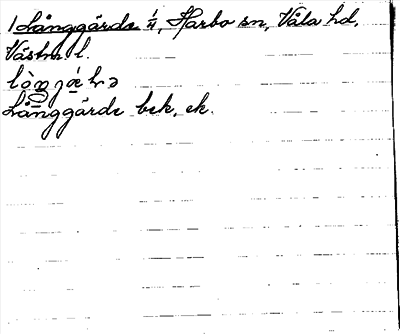 1 Långgärde 1/4, Harbo sn, Våla hd,
Västm l.
Långgärde bek, ek.